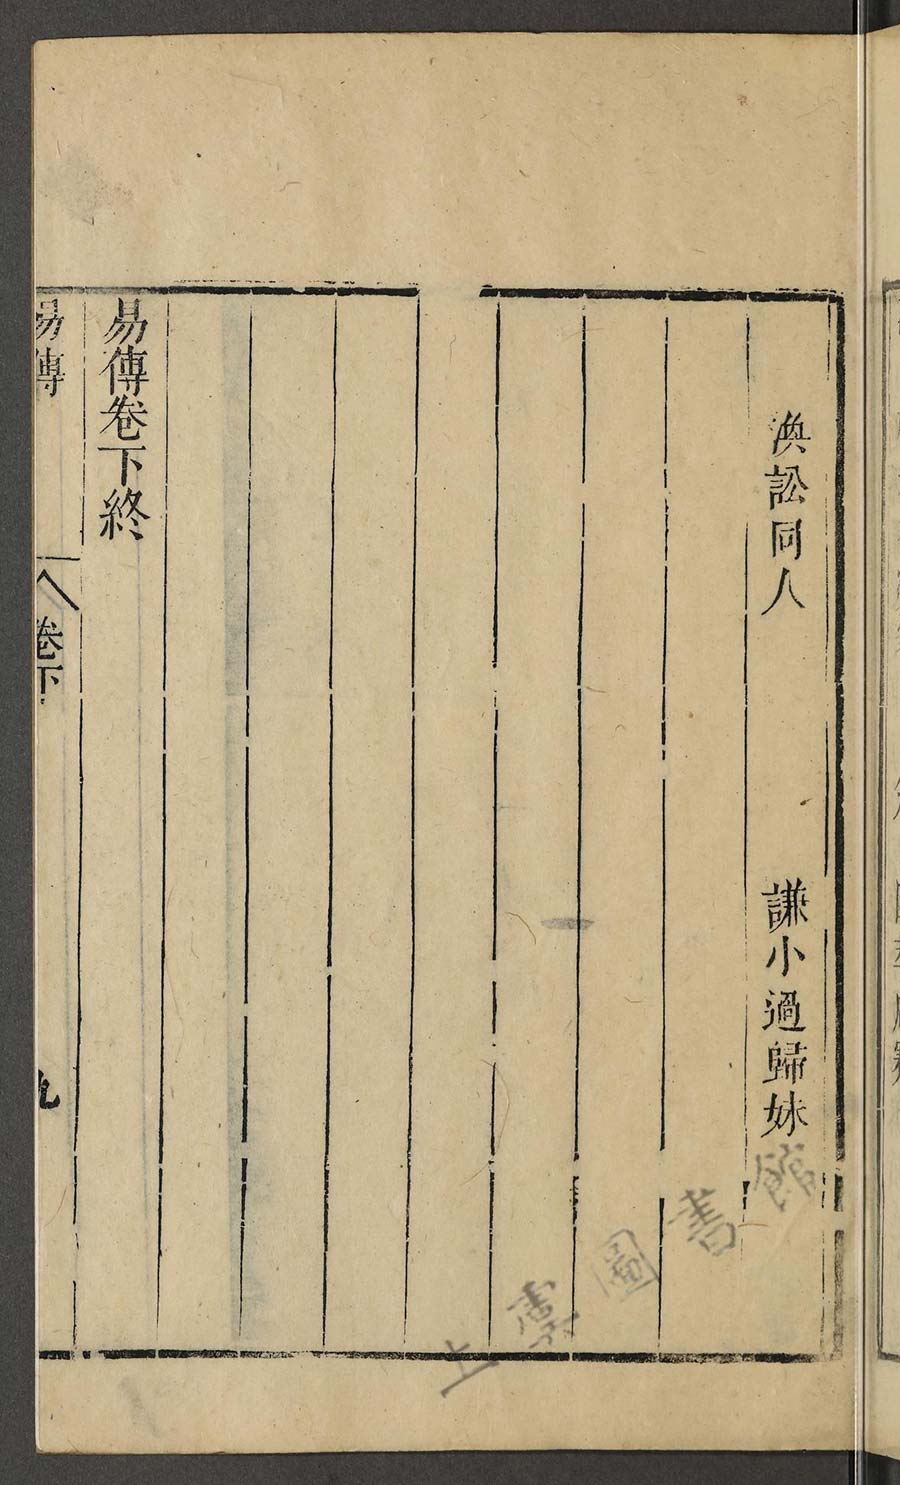 渙訟同人　謙小過歸妹
易傳卷下終
易傳　卷下　九
上虞圖書館